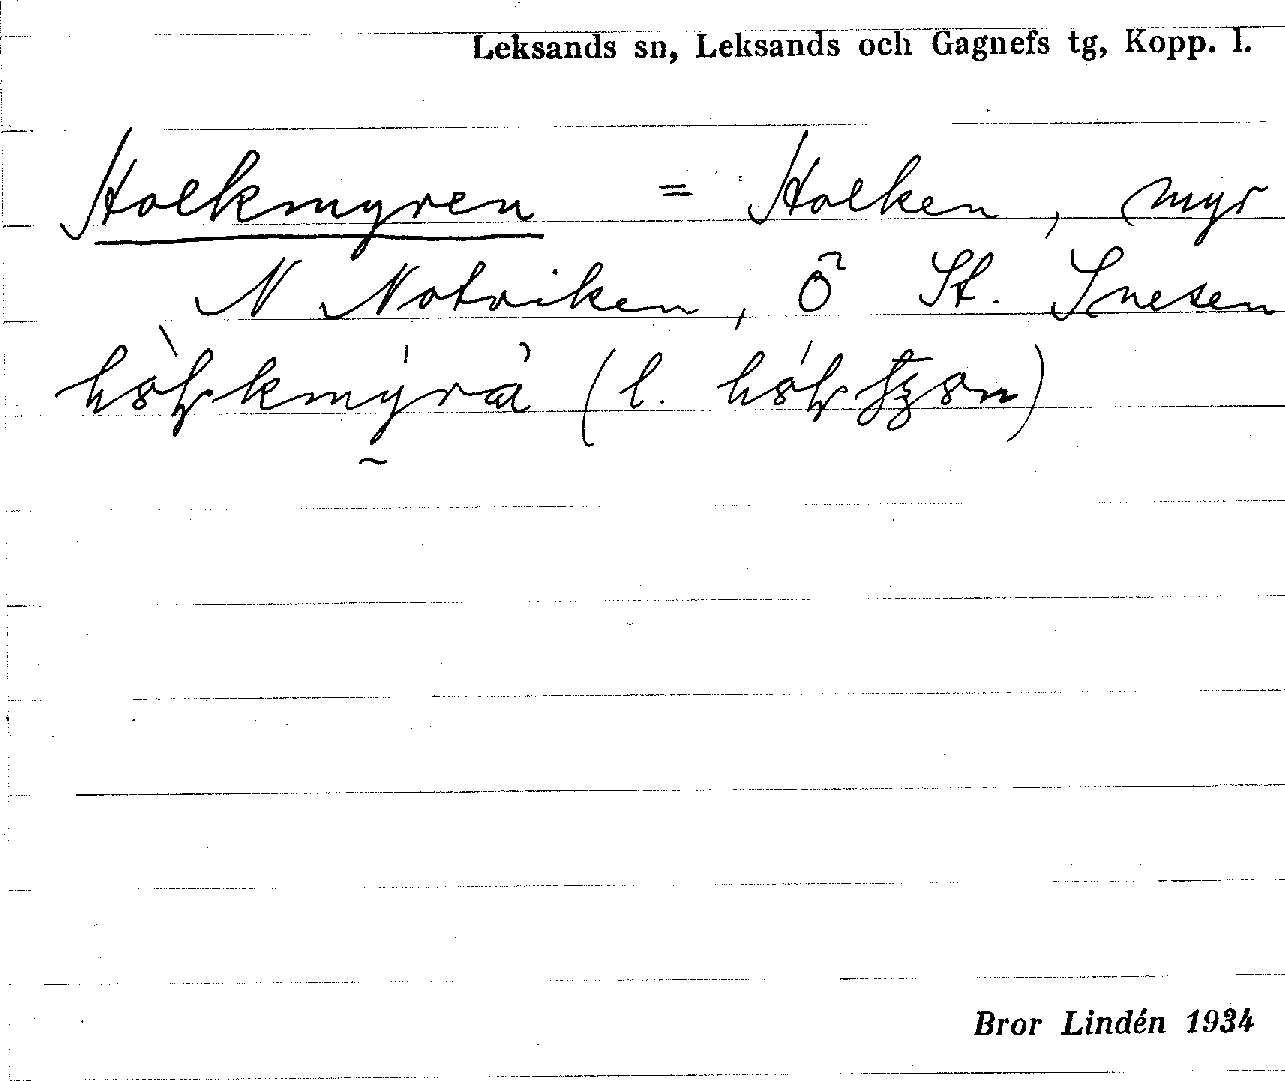 Leksands sn, Leksands och Gagnefs tg, Kopp. l.
Holkmyren = Holken, myr
N Notviken, Ö St. Snesen
(l.
Bror Lindén 1934